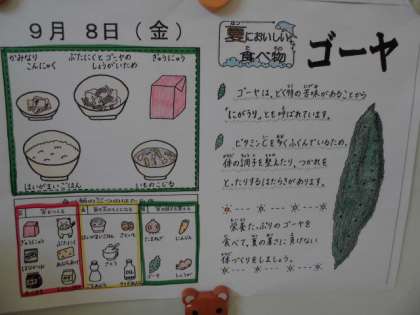 9月 8日(金)
かみなり
こんにゃく
ぶたにくとゴーヤの
しょうがいため
ぎゅうにゅう
はいがまいごはん
いものこじる
ぎゅうにゅう
ぶたにく
はいがまいごはん
さといも
さとう
たまねぎ
にんじん
しょうが
夏においしい
食べ物
ゴーヤ
ゴーヤは、どく特の苦味があることから
"にがうり"とも呼ばれています。
ビタミンCを多くふくんでいるため、
体の調子を整えたり、つかれを
とったりするはたらきがあります。
栄養たっぷりのゴーヤを
食べて、夏の暑さに負けない
体づくりをしましょう。